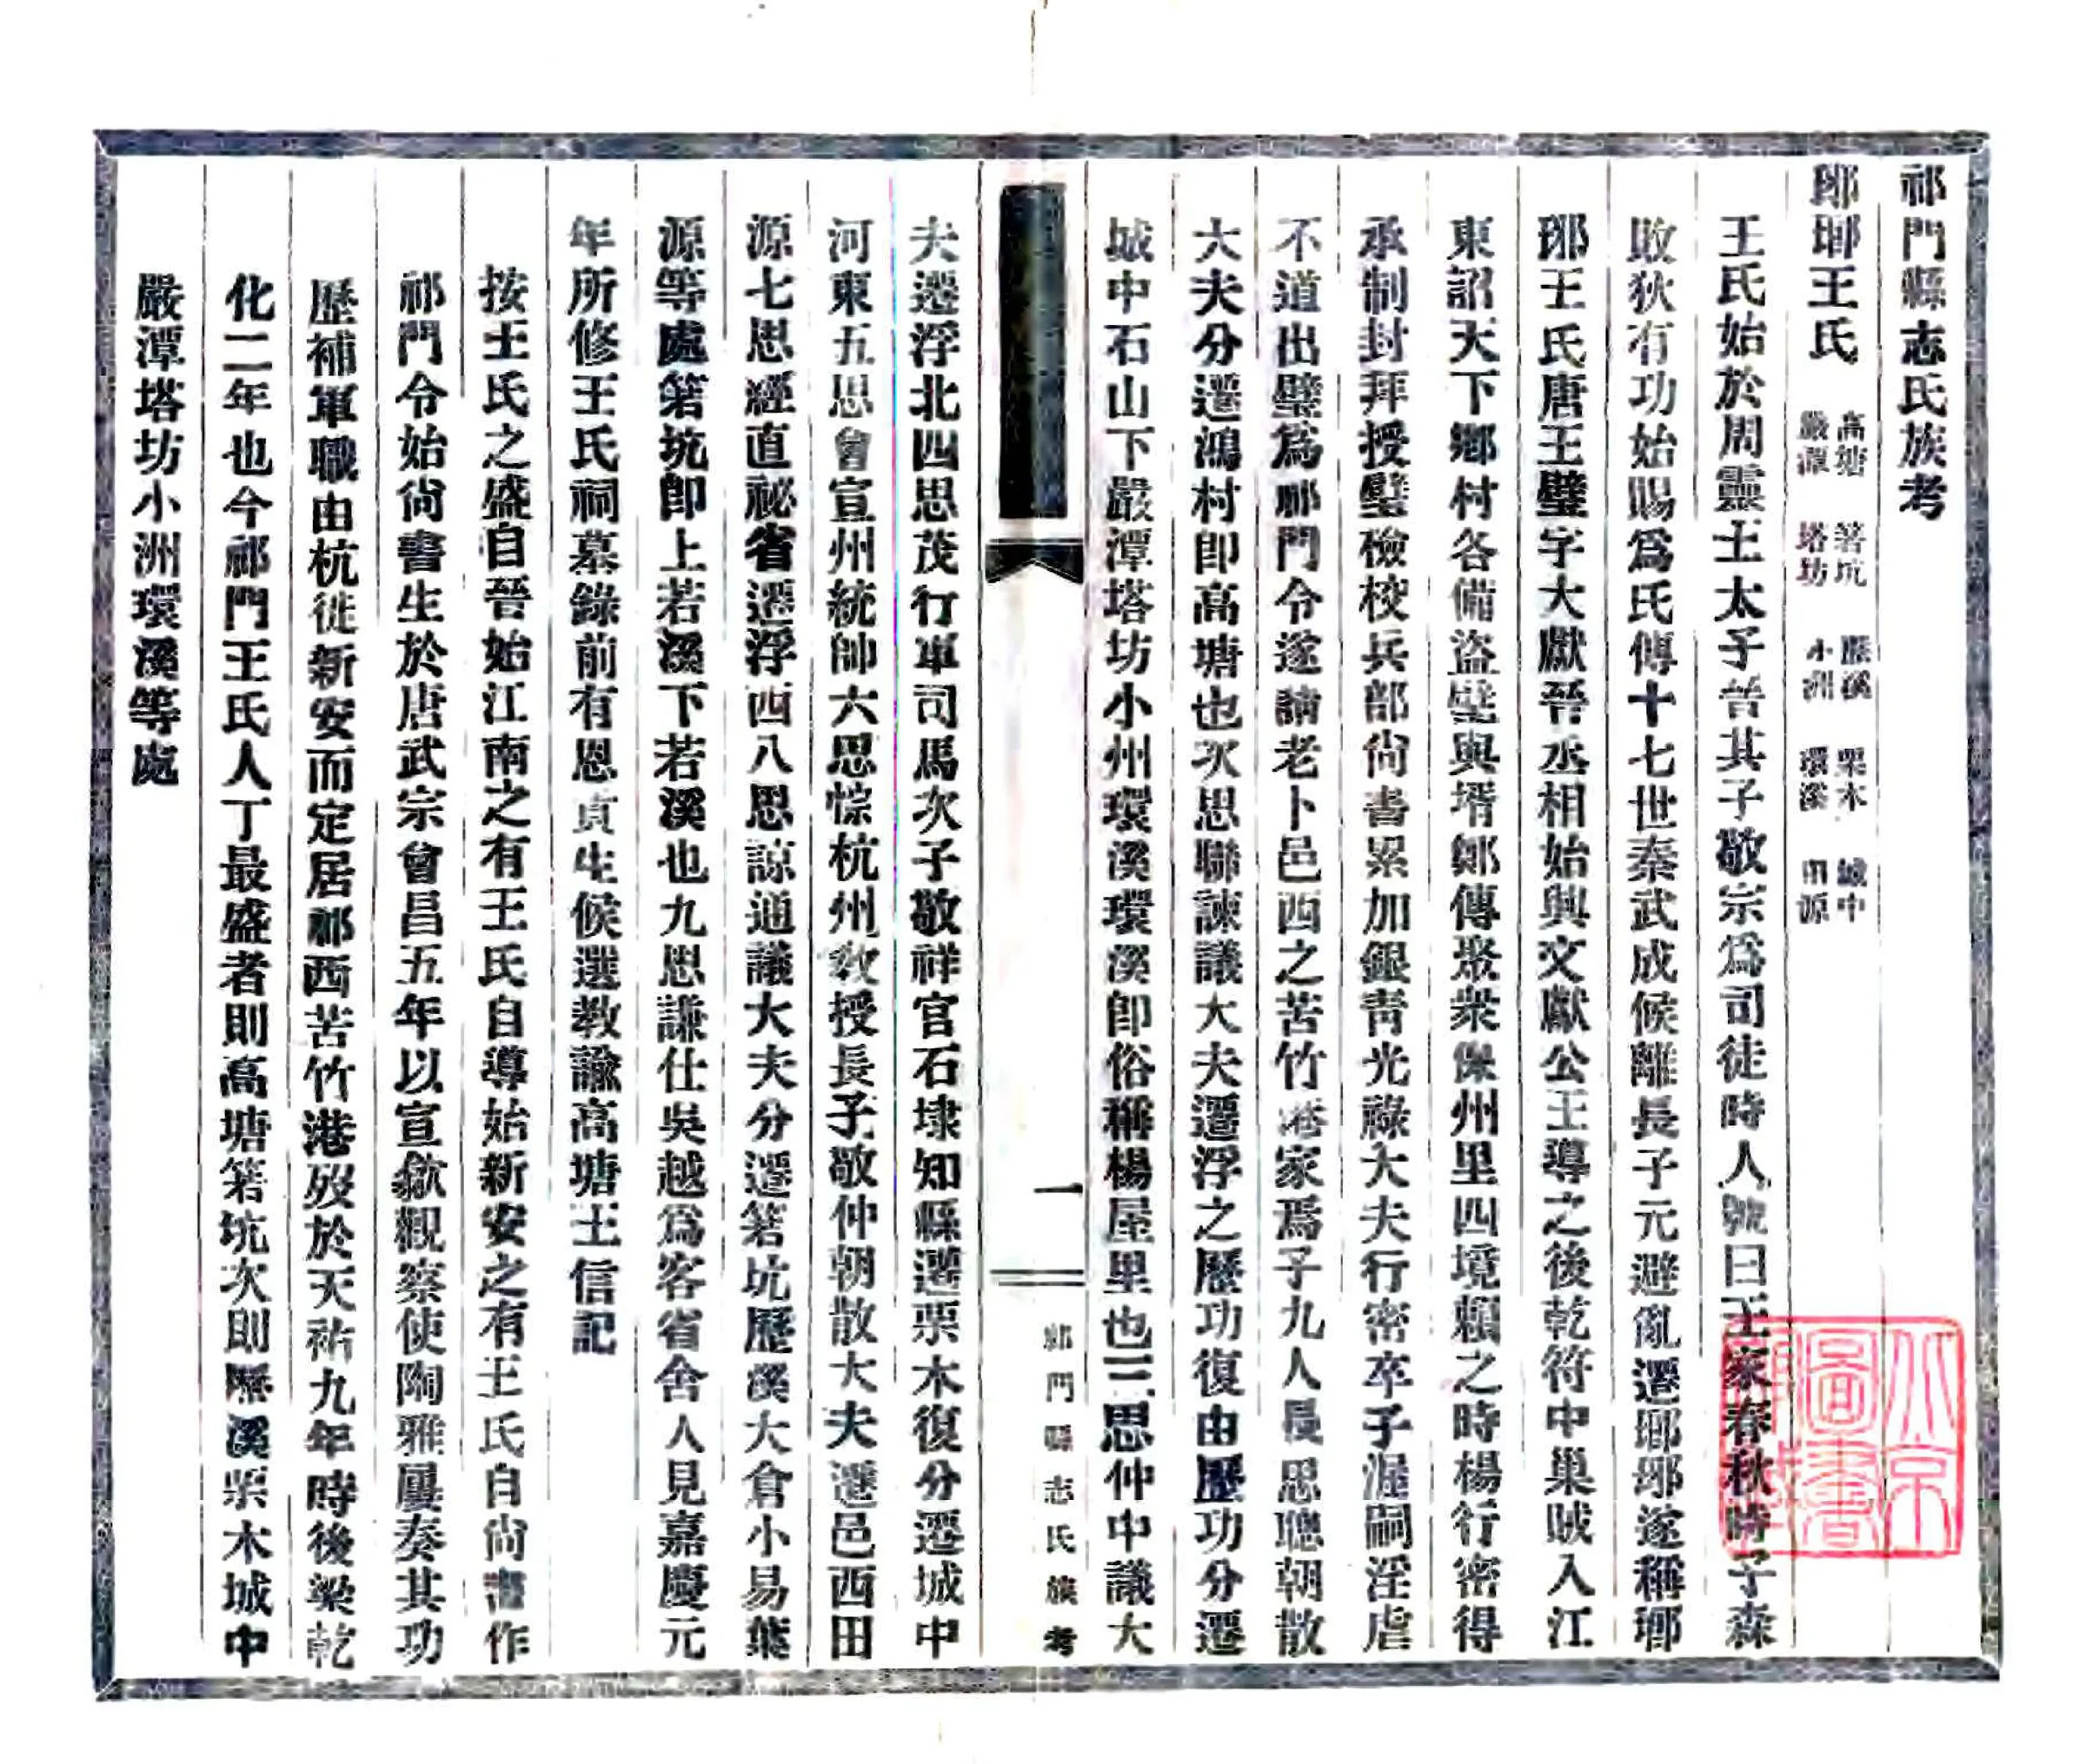 祁門縣志氏族考
琅琊王氏 高塘 箬坑 歷溪 栗木 城中 嚴潭 塔坊 小洲 環溪 田源
王氏始於周靈王太子晉其子敬宗爲司徒時人號曰王家春秋時子森
敗狄有功始賜爲氏傳十七世秦武成侯離長子元避亂遷瑯琊遂稱瑯
琊王氏唐王璧字大獻晉丞相始興文獻公王導之後乾符中巢賊入江
東詔天下鄉村各備盜璧與壻鄭傳聚衆保州里四境賴之時楊行密得
承制封拜授璧檢校兵部尙書累加銀靑光祿大夫行密卒子渥嗣淫虐
不道出璧爲祁門令遂請老卜邑西之苦竹港家焉子九人長思聰朝散
大夫分遷鴻村卽高塘也次思聯諫議大夫遷浮之歷功復由歷功分遷
城中石山下嚴潭塔坊小州環溪環溪卽俗稱楊屋里也三思仲中議大
祁門縣志氏族考
一
夫遷浮北四思茂行軍司馬次子敬祥官石埭知縣遷栗木復分遷城中
河東五思曾宣州統帥六思悰杭州敎授長子敬仲朝散大夫遷邑西田
源七思經直祕省遷浮西八思諒通議大夫分遷箬坑歷溪大倉小易葉
源等處箬坑卽上若溪下若溪也九思謙仕吳越爲客省舍人見嘉慶元
年所修王氏祠墓錄前有恩貢生候選教諭高塘王信記
按王氏之盛自晉始江南之有王氏自導始新安之有王氏自尙書作
祁門令始尙書生於唐武宗會昌五年以宣歙觀察使陶雅屢奏其功
歷補軍職由杭徙新安而定居祁西苦竹港歿於天祐九年時後梁乾
化二年也今祁門王氏人丁最盛者則高塘箬坑次卽歷溪栗木城中
嚴潭塔坊小洲環溪等處